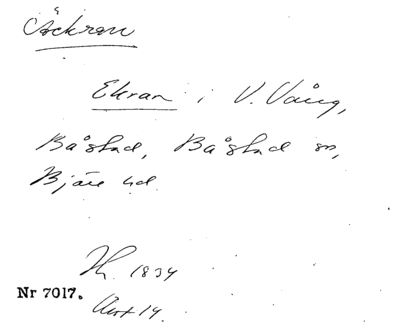 Äckran
Ekran i V. Vång,
Båstad, Båstad sn,
Bjäre hd.
1834
Nr 7017.
Akt 14.